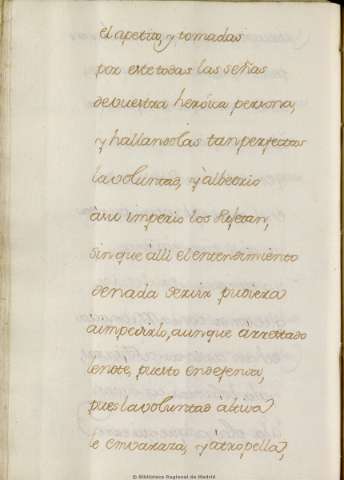 el apetito, y tomadas
por este todas las señas
de vuestra heróica persona,
y hallandolas tan perfectas
la voluntad, y àlbedrio
à su imperio los sujetan,
sin que àlli el entendimiento
de nada servir pudiera
à impedirlo, aunque àrrestado
le noté, puesto en defensa,
pues la voluntad àltiva
le embaraza, y àtropella,
© Biblioteca Regional de Madrid